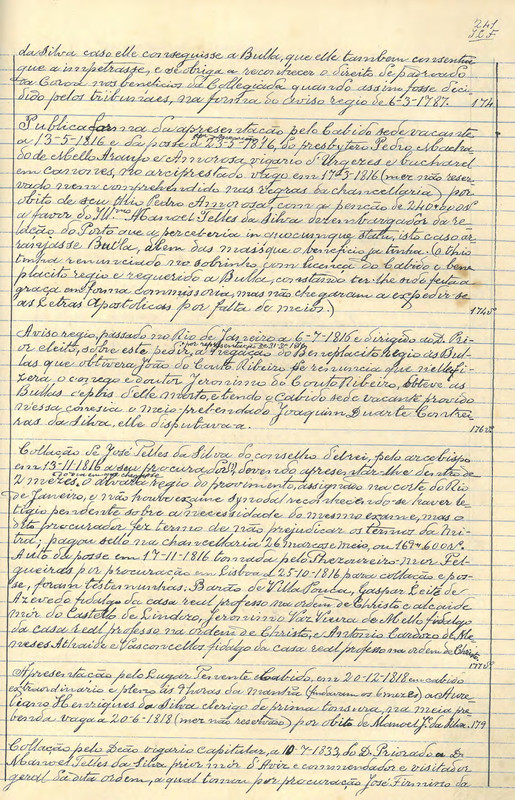 241
J.O.F.
da Silva caso elle conseguisse a Bulla, que elle tambem consentiu
que a impetrasse, e se obriga a reconhecer o direito de padroado
da Coroa nos beneficios da Collegiada quando assim fosse deci-
dido pelos tribunaes, na forma do aviso regio de 6-3-1787. 174
Publica forma da apresentação pelo Cabido sede vacante
a 13-5-1816 e da posse de 23-5-1816, do presbytero Pedro Macha-
do de Mello Araujo e Amorosa, vigario d'Urgezes e bacharel
em canones, no arciprestado vago em 17-3-1816 (mez não reser-
vado nem comprehendido nas regras da chancellaria) por
obito de seu thio Pedro Amorosa, com a penção de 240$000 rs
a favor do Ill.mo Manoel Telles da Silva dezembargador da re-
lação do Porto que a perceberia in quocumque statu, isto caso ar-
ranjasse Bulla, alem das mais que o beneficio ja tinha. (O thio
tinha renunciado no sobrinho com licença do Cabido e bene-
placito regio e requerido a Bulla, constando ser-lhe sido feita a
graça em forma commissoria, mas não chegaram a expedir-se
as Letras Apostolicas por falta de meios.) 174 v.
Aviso regio, passado no Rio de Janeiro a 6-7-1816 e dirigido ao D. Pri-
or eleito, sobre este pedir, a negação do Beneplacito Regio ás Bul-
las que obtivera João do Couto Ribeiro pe renuncia que n'elle fi-
zera o conego e doutor Jeronimo do Couto Ribeiro, obteve as
Bullas depois d'elle morto, e tendo o Cabido sede vacante provido
n'essa conesia o meio prebendado Joaquim Duarte Contrei-
ras da Silva, elle disputava-a. 176 v.
Collação de José Telles da Silva do conselho d'elrei, pelo arcebispo
em 13-11-1816 a seu procurador, devendo apresentar-lhe dentro de
2 mezes o alvará regio do provimento, assignado na corte do Rio
de Janeiro, e não houve exame synodal reconhecendo-se haver li-
tigio pendente sobre a necessidade do mesmo exame, mas o
dito procurador fez termo de não prejudicar os termos da Mi-
tra; pagou sello na chancellaria 26 marcos e meio, ou 169$600 rs.
Auto da posse em 17-11-1816 tomada pelo Thezoureiro-mor Fel-
gueiras por procuração em Lisboa a 25-10-1816 para collação e pos-
se, foram testemunhas: Barão de Villa Pouca, Gaspar Leite de
Azevedo fidalgo da casa real professo na ordem de Christo alcaide
mór do Castello de Lindozo, Jeronimo Vaz Vieira de Mello fidalgo
da casa real professo na ordem de Christo, e Antonio Cardozo de Me-
neses Athaide e Vasconcellos fidalgo da casa real professo na ordem de Christo 177 v.
Apresentação pelo Lugar Tenente Cabido, em 20-12-1818 em cabido
extraordinario e pleno ás 9 horas da manhã (findavam os 6 mezes) a Aure-
liano Henriques da Silva clerigo de prima tonsura, na meia pre-
benda vaga a 20-6-1818 (mez não reservado) por obito de Manoel J. da Silva. 179
Collação pelo Deão vigario capitular, a 10-7-1833, do D. Priorado a D.
Manoel Telles da Silva prior mór d'Aviz e commendador e visitador
geral da dita ordem, a qual tomou por procuração José Firmino da